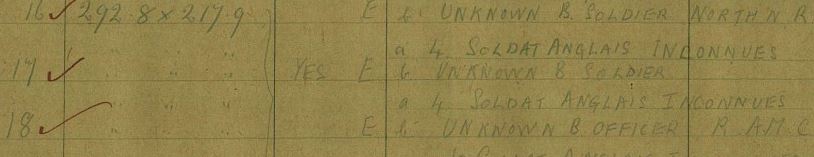 16 ✓ 292.8 x 217.9 E b UNKNOWN B. SOLDIER NORTH'N R
a 4 SOLDAT ANGLAIS INCONNUES
17 ✓ " " " YES E b UNKNOWN B SOLDIER
a 4 SOLDAT ANGLAIS INCONNUES
18 ✓ " " " E b UNKNOWN B. OFFICER R.A.M.C